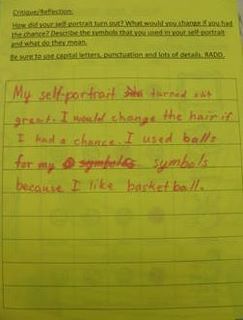 Critique/Reflection:
How did your self-portrait turn out? What would you change if you had
the chance? Describe the symbols that you used in your self-portrait
and what do they mean.
Be sure to use capital letters, punctuation and lots of details. RADD.
My self-portrait turned out
great. I would change the hair if
I had a chance. I used balls
for my symbols
because I like basketball.